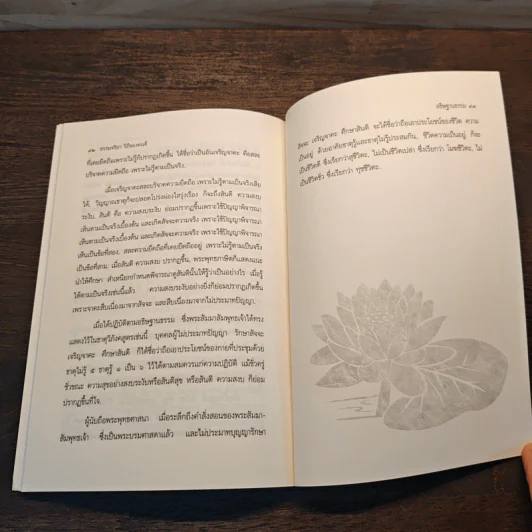 ๙๒ ธรรมจริยา วิถีของคนดี
ที่เคยยึดถือเพราะไม่รู้ก็ปรากฏเกิดขึ้น ได้ชื่อว่าเป็นอันเจริญจาคะ คือสละ
บริจาคความยึดถือ เพราะไม่รู้ตามเป็นจริง.
เมื่อเจริญจาคะสละบริจาคความยึดถือ เพราะไม่รู้ตามเป็นจริงเสีย
ได้. วิญญาณธาตุก็จะปลอดโปร่งผ่องใสรุ่งเรือง ก็จะถึงสันติ ความสงบ
ระงับ. สันติ คือ ความสงบระงับ ย่อมปรากฏขึ้นเพราะใช้ปัญญาพิจารณา
เห็นตามเป็นจริงเบื้องต้น และเกิดสัจจะความจริง เพราะใช้ปัญญาพิจารณา
เห็นตามเป็นจริงเบื้องต้น และเกิดสัจจะความจริง เพราะใช้ปัญญาพิจารณา
เห็นเป็นข้อที่สอง, สละความยึดถือที่เคยยึดถืออยู่ เพราะไม่รู้ตามเป็นจริง
เป็นข้อที่สาม. เมื่อสันติ ความสงบ ปรากฏขึ้น, พระพุทธภาษิตก็แสดงแนะ
นำให้ศึกษา สำเหนียกกำหนดพิจารณาดูสันตินั้นให้รู้ว่าเป็นอย่างไร เมื่อรู้
ได้ตามเป็นจริงเช่นนี้แล้ว ความสงบระงับอย่างยิ่งก็ย่อมปรากฏเกิดขึ้น
เพราะจาคะสืบเนื่องมาจากสัจจะ และสืบเนื่องมาจากไม่ประมาทปัญญา.
เมื่อได้ปฏิบัติตามอธิษฐานธรรม ซึ่งพระสัมมาสัมพุทธเจ้าได้ทรง
แสดงไว้ในธาตุวิภังคสูตรเช่นนี้ บุคคลผู้ไม่ประมาทปัญญา รักษาสัจจะ
เจริญจาคะ ศึกษาสันติ ก็ได้ชื่อว่าถือเอาประโยชน์ของกายที่ประชุมด้วย
ธาตุไม่รู้ ๕ ธาตุรู้ ๑ เป็น ๖ ไว้ได้ตามสมควรแก่ความปฏิบัติ แม้ชั่วครู่
ชั่วขณะ ความสุขอย่างสงบระงับหรือสันติสุข หรือสันติ ความสงบ ก็ย่อม
ปรากฏขึ้นที่ใจ.
ผู้นับถือพระพุทธศาสนา เมื่อระลึกถึงคำสั่งสอนของพระสัมมา-
สัมพุทธเจ้า ซึ่งเป็นพระบรมศาสดาแล้ว และไม่ประมาทปัญญารักษา
อธิษฐานธรรม ๙๓
สัจจะ เจริญจาคะ ศึกษาสันติ จะได้ชื่อว่าถือเอาประโยชน์ของชีวิต ความ
เป็นอยู่ ด้วยอาศัยธาตุรู้และธาตุไม่รู้ประสมกัน, ชีวิตความเป็นอยู่ ก็จะ
เป็นชีวิตดี ซึ่งเรียกว่าสุชีวิตะ, ไม่เป็นชีวิตเปล่า ซึ่งเรียกว่า โมฆชีวิตะ, ไม่
เป็นชีวิตชั่ว ซึ่งเรียกว่า ทุชชีวิตะ.